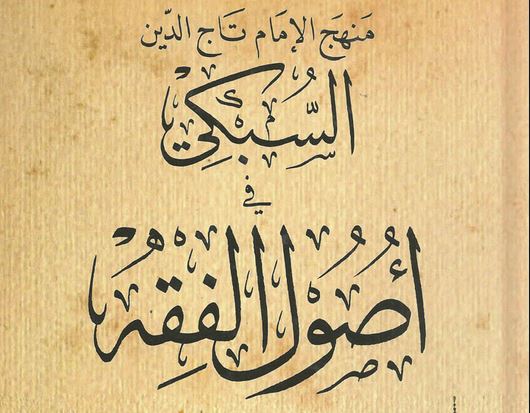 مَنهَج الإمَام تَاج الدّين
السُّبْكِي
في
أُصُوْل الفِقْه